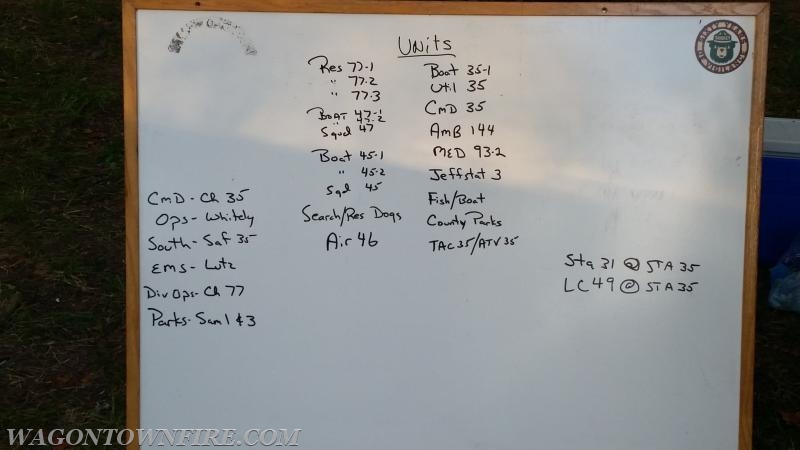 UNITS
Res 77-1
" 77-2
" 77-3
BOAT 47-1
" 47-2
Squd 47
Boat 45-1
" 45-2
Sqd 45
Search/Res Dogs
Air 46
Boat 35-1
Util 35
CMD 35
AMB 144
MED 93-2
Jeffstat 3
Fish/Boat
County Parks
TAC 35/ATV 35
CMD - Ch 35
Ops - Whitely
South - Saf 35
EMS - Lutz
Div Ops - Ch 77
Parks - Sam 1 & 3
Sta 31 @ STA 35
LC 49 @ STA 35
SIXTY YEARS
SMOKEY
OF VIGILANCE
WAGONTOWNFIRE.COM